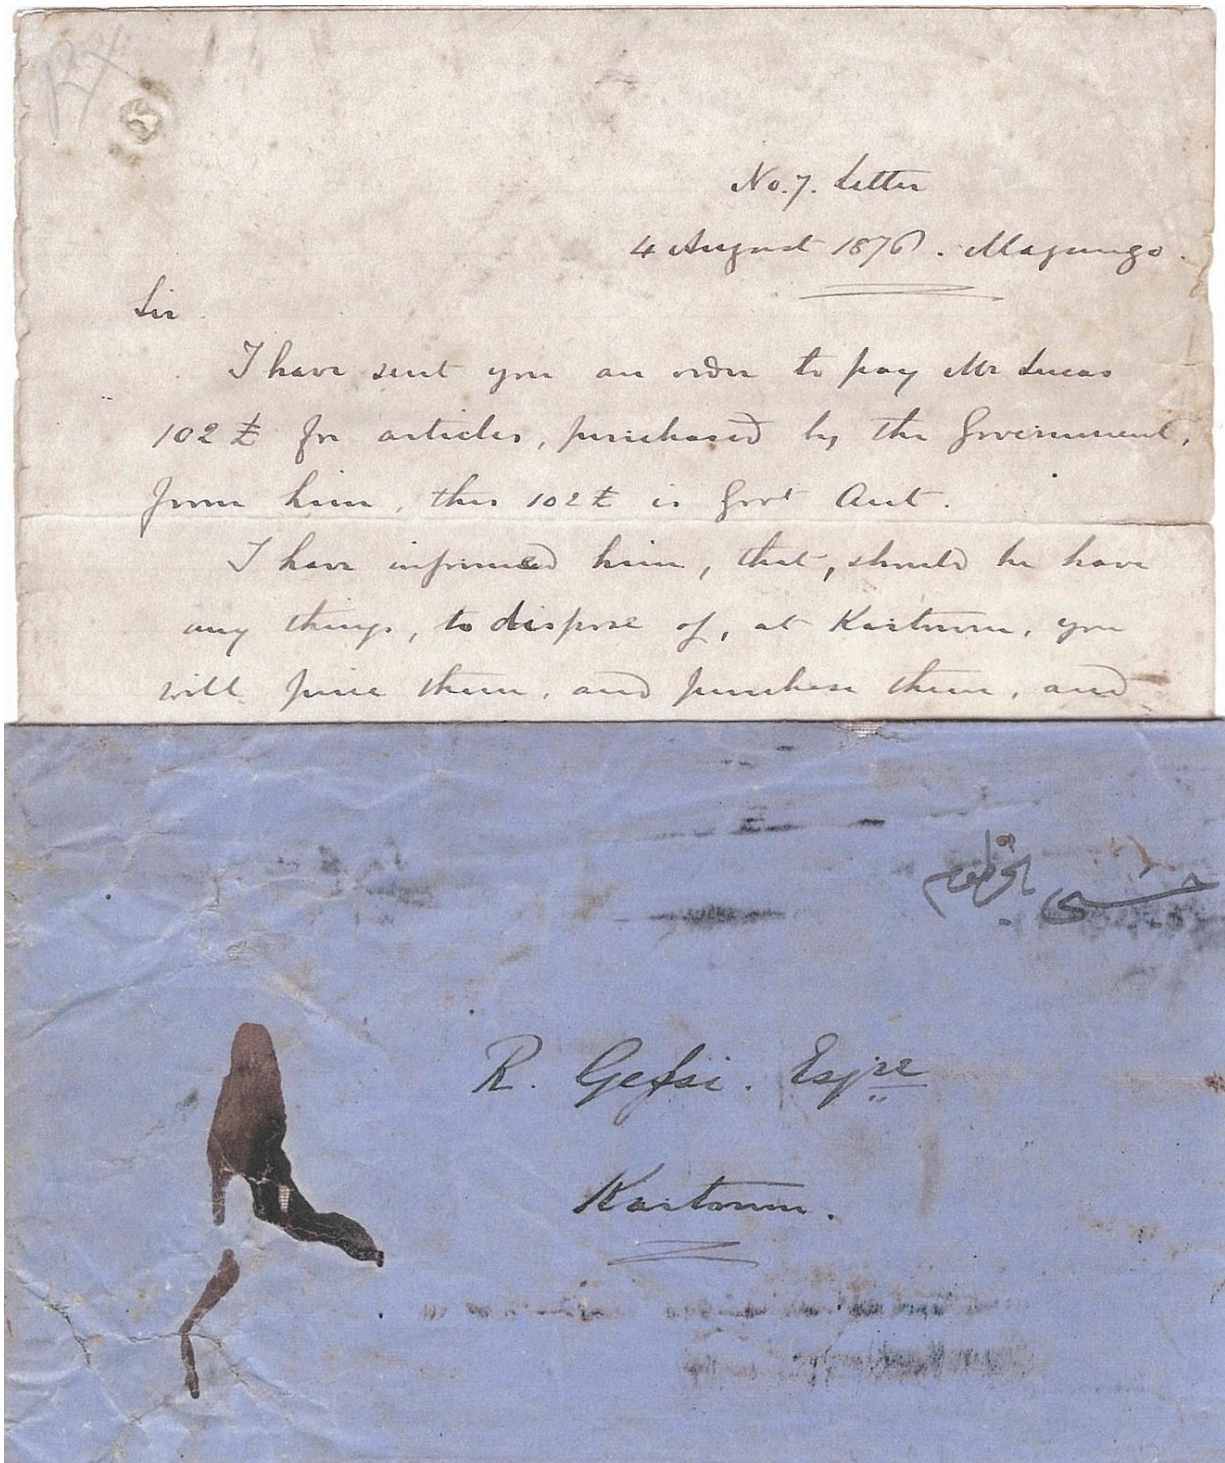 No. 7. Letter
4 August 1876. Magungo.
Sir
I have sent you an order to pay Mr Lucas
102 £ for articles, purchased by the Government,
from him, this 102 £ is Govt Acct.
I have informed him, that, should he have
any things, to dispose of, at Kartoum, you
will price them, and purchase them, and
R. Gessi. Esqre
Kartoum.